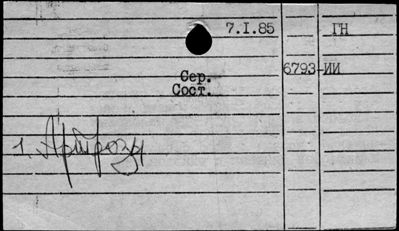 7.I.85 ГН
6793-ИИ
Сер.
Сост.
1. Артрозы